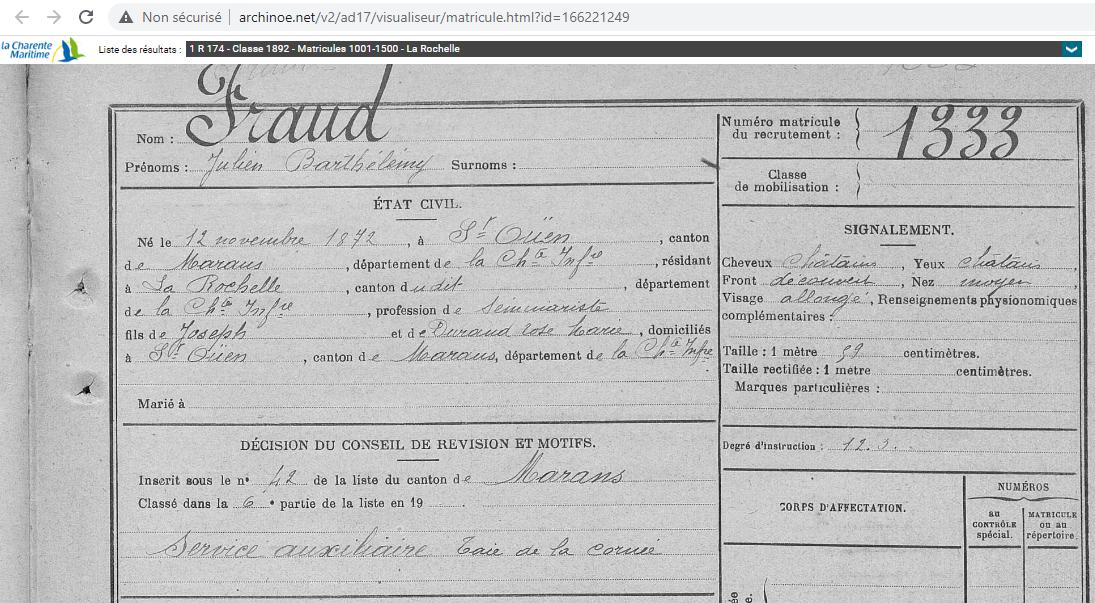 Non sécurisé | archinoe.net/v2/ad17/visualiseur/matricule.html?id=166221249
la Charente Maritime
Liste des résultats : 1 R 174 - Classe 1892 - Matricules 1001-1500 - La Rochelle
Nom : Fraud
Prénoms : Julien Barthélémy Surnoms :
Numéro matricule du recrutement : 1333
Classe de mobilisation :
ÉTAT CIVIL.
Né le 12 novembre 1872, à St Oüen, canton
de Marans, département de la Chte Infre, résidant
à La Rochelle, canton dudit, département
de la Chte Infre, profession de Séminariste
fils de Joseph et de Durand rose Marie, domiciliés
à St Oüen, canton de Marans, département de la Chte Infre
Marié à
SIGNALEMENT.
Cheveux châtains, Yeux châtais,
Front découvert, Nez moyen,
Visage allongé, Renseignements physionomiques
complémentaires :
Taille : 1 mètre 59 centimètres.
Taille rectifiée : 1 mètre centimètres.
Marques particulières :
Degré d'instruction : 1.2.3.
DÉCISION DU CONSEIL DE REVISION ET MOTIFS.
Inscrit sous le n° 42 de la liste du canton de Marans
Classé dans la 6e partie de la liste en 19
Service auxiliaire Taie de la cornée
CORPS D'AFFECTATION.
NUMÉROS
au CONTRÔLE spécial.
MATRICULE ou au répertoire.